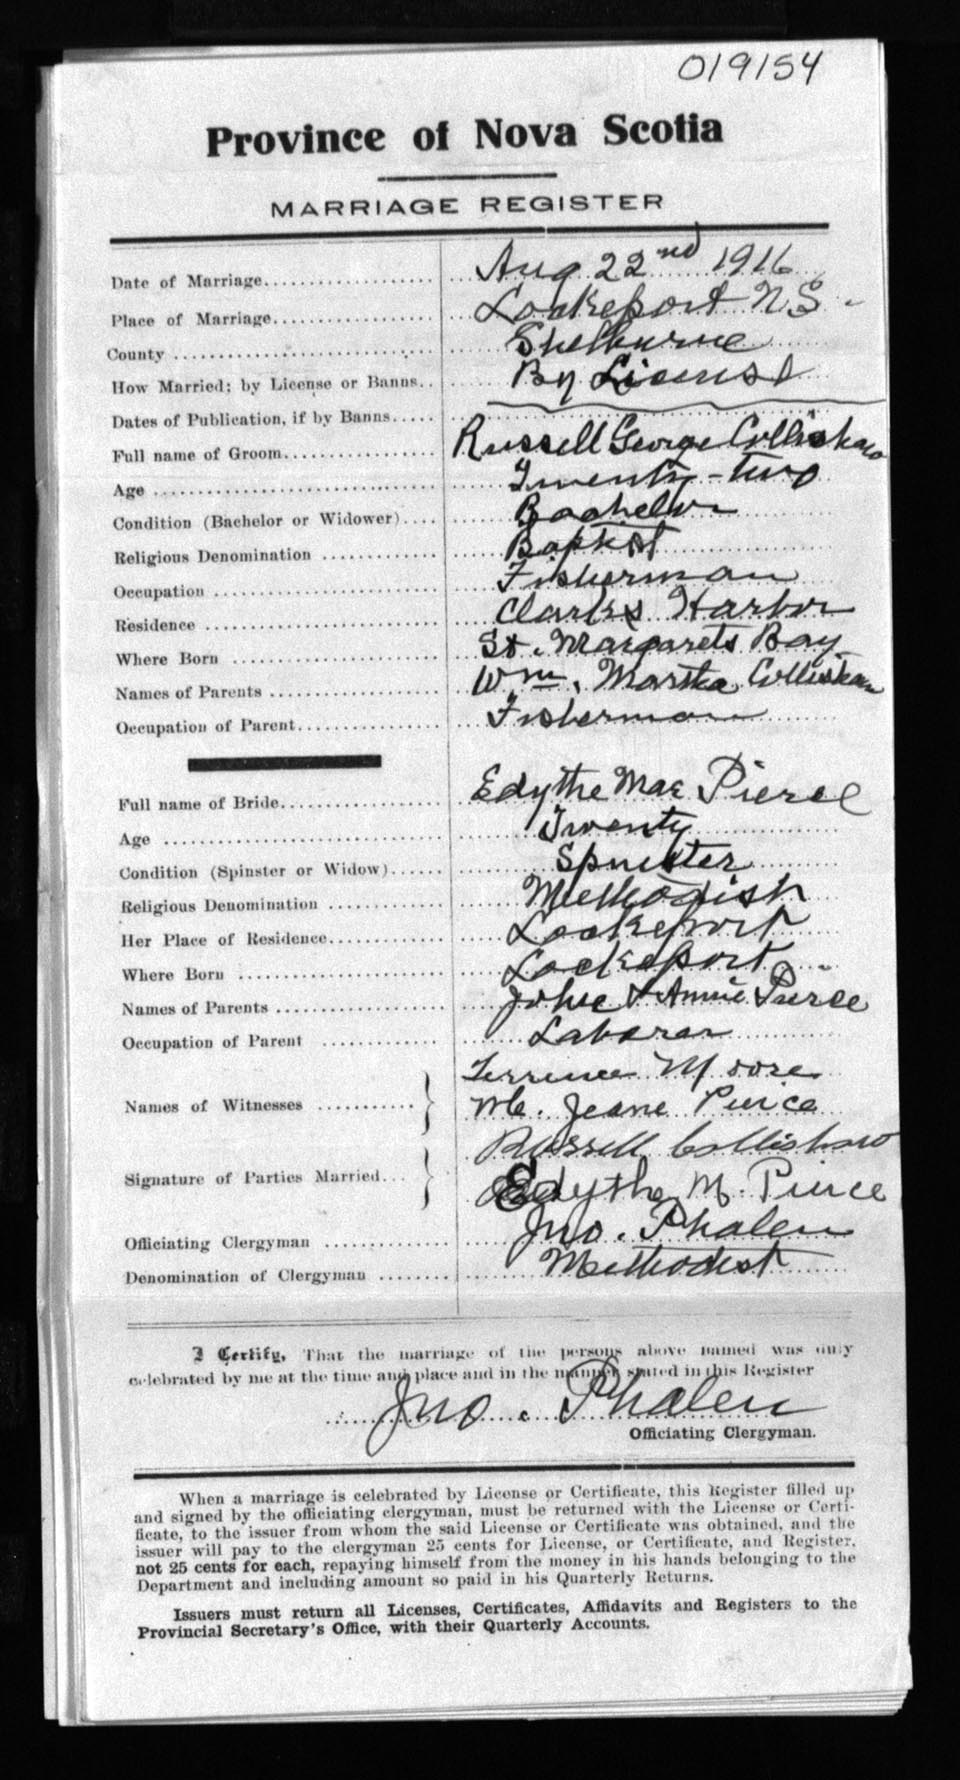 019154
Province of Nova Scotia
MARRIAGE REGISTER
Date of Marriage Aug 22nd 1916
Place of Marriage Lockeport N S
County Shelburne
How Married; by License or Banns By License
Dates of Publication, if by Banns
Full name of Groom Russell George Collishaw
Age Twenty-two
Condition (Bachelor or Widower) Bachelor
Religious Denomination Baptist
Occupation Fisherman
Residence Clarks Harbor
Where Born St. Margarets Bay
Names of Parents Wm. Martha Collishaw
Occupation of Parent Fisherman
Full name of Bride Edythe Mae Pierce
Age Twenty
Condition (Spinster or Widow) Spinster
Religious Denomination Methodist
Her Place of Residence Lockeport
Where Born Lockeport
Names of Parents & Annie Pierce
Occupation of Parent Laborer
Names of Witnesses Terrence Moore
Jeane Pierce
Signature of Parties Married Russell Collishaw
Edythe M. Pierce
Officiating Clergyman Jno. Phalen
Denomination of Clergyman Methodist
I Certify, That the marriage of the persons above named was duly
celebrated by me at the time and place and in the manner stated in this Register
Jno. Phalen
Officiating Clergyman.
When a marriage is celebrated by License or Certificate, this Register filled up
and signed by the officiating clergyman, must be returned with the License or Certi-
ficate, to the issuer from whom the said License or Certificate was obtained, and the
issuer will pay to the clergyman 25 cents for License, or Certificate, and Register,
not 25 cents for each, repaying himself from the money in his hands belonging to the
Department and including amount so paid in his Quarterly Returns.
Issuers must return all Licenses, Certificates, Affidavits and Registers to the
Provincial Secretary's Office, with their Quarterly Accounts.